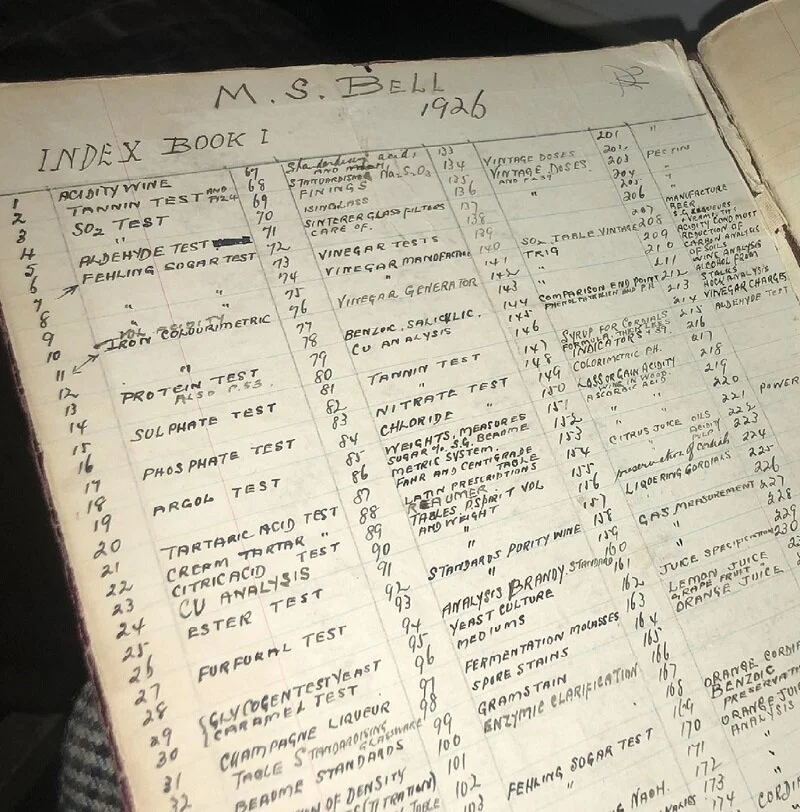 M. S. BELL
1926
INDEX BOOK I
1 ACIDITY WINE
2 TANNIN TEST AND
3 SO2 TEST
4 "
5 ALDEHYDE TEST
6 FEHLING SUGAR TEST
7
8 " "
9 VOL ACIDITY
10 IRON COLOURIMETRIC
11
12 "
13 PROTEIN TEST
ALSO P. 53.
14 SULPHATE TEST
15
16 PHOSPHATE TEST
17
18 ARGOL TEST
19
20 TARTARIC ACID TEST
21 CREAM TARTAR "
22 CITRIC ACID TEST
23 CU ANALYSIS
24 ESTER TEST
25
26 FURFURAL TEST
27
28 GLYCOGEN TEST YEAST
29 CARAMEL TEST
30 CHAMPAGNE LIQUEUR
31 TABLE STANDARDISING GLASSWARE
32 BEAUME STANDARDS
OF DENSITY
(TITRATION)
TABLE
67 acid,
68 STANDARDISING Na2S2O3
69 FININGS
70 ISINGLASS
71 SINTERED GLASS FILTERS
CARE OF.
72 VINEGAR TESTS
73 VINEGAR MANUFACTURE
74 "
75 VINEGAR GENERATOR
76
77 BENZOIC. SALICYLIC.
78 CU ANALYSIS
79
80 TANNIN TEST
81 "
82 NITRATE TEST
83 CHLORIDE "
84 WEIGHTS, MEASURES
SUGAR % S.G. BEAUME
85 METRIC SYSTEM.
86 FAHR AND CENTIGRADE TABLE
87 LATIN PRESCRIPTIONS
REAUMER.
88 TABLES P. SPIRIT VOL
89 AND WEIGHT
90 "
91 STANDARDS PURITY WINE
92 "
93 ANALYSIS BRANDY. STANDARD
94 YEAST CULTURE
95 MEDIUMS
96 FERMENTATION MOLASSES
97 SPORE STAINS
98 GRAM STAIN
99 ENZYMIC CLARIFICATION
100
101
102 FEHLING SUGAR TEST
103 "
NAOH.
133 VINTAGE DOSES
134 VINTAGE DOSES
135 "
136
137
138 SO2 TABLE VINTAGE
139 TRIG
140 "
141
142 COMPARISON END POINT
143 PHENOLPHTHALEIN AND PH.
144
145
146 SYRUP FOR CORDIALS
147 INDICATORS
148 COLORIMETRIC PH.
149
150 LOSS OR GAIN ACIDITY
WINE IN WOOD.
151 ASCORBIC ACID
152
153 CITRUS JUICE OILS
154 " " ACIDITY
" " PULP
155 preservation of cordials
156 LIQUORING CORDIALS
157
158 GAS MEASUREMENT
159 "
160
161 JUICE SPECIFICATION
162 LEMON JUICE
GRAPE FRUIT "
163 ORANGE JUICE
164
165
166
167 ORANGE CORDIAL
168 BENZOIC
169 PRESERVATION
170 ORANGE JUICE
ANALYSIS
171 "
172 "
173
174 CORDIAL
201 "
202
203 PECTIN
204 "
205
206 MANUFACTURE
BEER
207 S.G. LIQUEURS
208
209 ACIDITY COND MOST
REDUCTION OF
210 CARBON ANALYSIS
OF SOILS
211 WINE ANALYSIS
212 ALCOHOL FROM
STALKS
213 HOCK ANALYSIS
214 VINEGAR CHARGES.
215 ALDEHYDE TEST
216
217
218
219
220
221 POWER
222
223
224
225
226
227
228
229
230